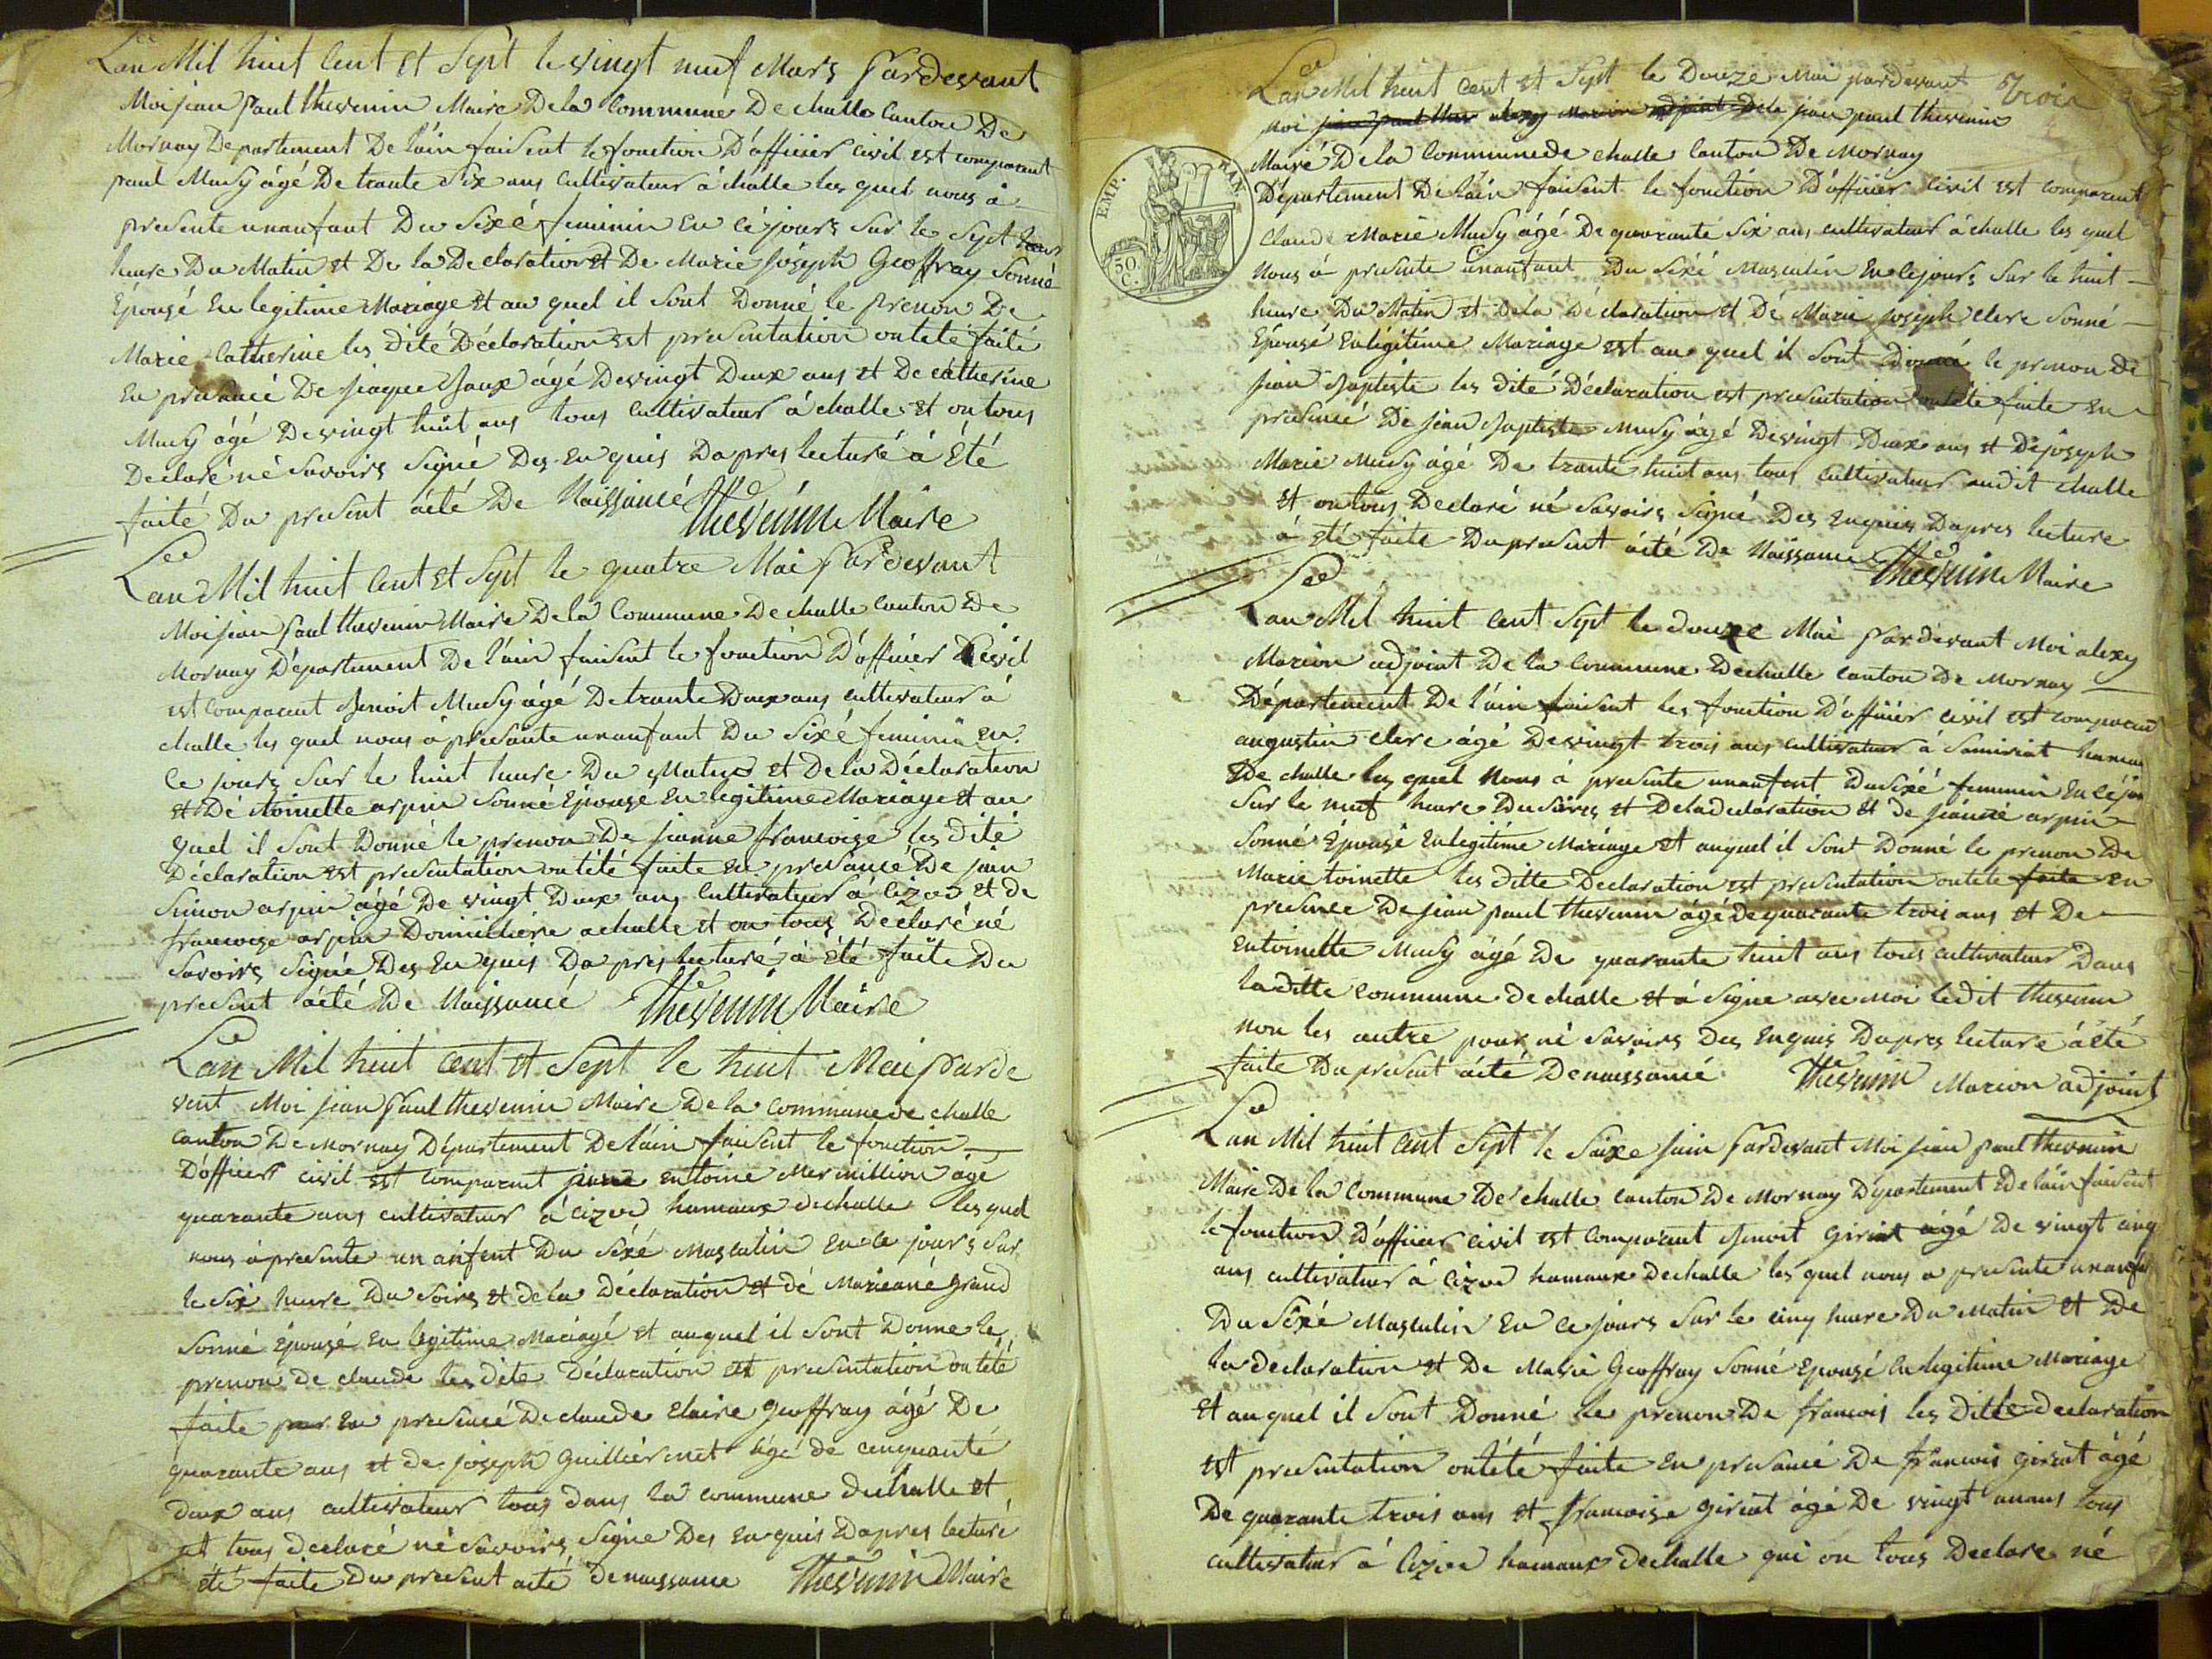 Lan Mil huit Cent et Sept le vingt neuf Mars Pardevant
Moi jean Paul thevenin Maire Dela Commune De challe Canton De
Mornay Departement De lain faisent le fonction D'affiier civil est comparent
paul Musy âgé De trante Six ans Cultivateur à challe les quel nous à
presente unanfant Du Sixé feminin En céjours Sur le Sept
heure Du Matin et De la Declaration et De Marie joseph Geoffray Sonné
Epousé En legitime Mariage et au quel il Sont Donné le prenon De
Marie Catherine les dité Déclaration est presentation ontété faité
En presancé De jiaque Jaux âgé Devingt Deux ans et De catherine
Musy âgé Devingt huit ans tous Cultivateur à challe et on tous
Declaré né Savoirs Signé Des En quis Dapres lecturé à Été
faité Du present acté De Naissancé Thevenin Maire
Lan Mil huit Cent et Sept le quatre Mai Pardevant
Moi jean Paul thevenin Maire De la Commune De challe canton De
Mornay Département De lain faisent le fonction D'affiier Civil
est Comparent Benoit Musy âgé Detrante Deux ans cultivateur à
challe les quel nous à présante unanfant Du Sixé feminin En
Ce jours Sur le huit heure Du Matin et De la Déclaration
et Dé toinette arpin Sonné Epousé En legitime Mariage et au
quel il Sont Donné le prenon De jeanne francoise les dité
Déclaration est presentation ontété faite En presancé De jean
Simon arpin âgé De vingt Deux ans Cultivateur à Cizod et de
francoise arpin Domicilière a challe et on tous Declaré né
Savoirs Signé Des En quis Da pres lecturé à Été faite Du
present acté De Naissancé Thevenin Maire
Lan Mil huit Cent et Sept le huit Mai Parde
vent Moi jean Paul thevenin Maire De la commune de challe
canton De Mornay Département De lain faisent le fonction
D'affiierr civil est comparent entoine Mermillion âgé
quarante ans cultivateur à Cizod hamaux de challe les quel
nous à presente un anfent Du Séxé Masculin En ce jours Sur
le Six heure Du Soirs et dela Déclaration et dé Marieané grand
Sonné Epousé En legitime Mariagé et au quel il Sont Donne le
prenon de claude les dite Déclaration est presentation ontété
faite En presencé De claude claire geoffray âgé De
quarante ans et de joseph guilliérmet âgé de cinquanté
Deux ans cultivateur tous dans la commune de challe et
et tous declaré né Savoirs Signe Des En quis Dapres lecturé
été faite Du present acté de naissance Thevenin Maire
Trois
Lan Mil huit Cent et Sept le Douze Mai pardevant
Moi jean paul thevenin
Mairé De la Communede challe Canton De Mornay
Département De lain faisent le fonction D'affiier Civil est comparent
Claude Marie Musy âgé De quarante Six ans cultivateur à challe les quel
Nous à presente unanfant Du Séxé Masculin En cejours Sur le huit
heure Du Matin et Dela Déclaration et Dé Marie joseph clere Sonné
Epousé En légitime Mariage est au quel il Sont Donné le prenon de
jean Baptiste les dité Déclaration est presentation ontété faite En
presencé De jean Baptiste Musy âgé Devingt Deux ans et De joseph
Marie Musy âgé De trante huit ans tous Cultivateur audit challe
et ontous Declaré né Savoirs Signé Des Enquis Dapres lecture
à été faite Du present acté De Naissance Thevenin Maire
Lan Mil huit Cent Sept le douze Mai Pardevant Moi alexy
Marion adjoint De la Commune Dechalle canton De Mornay
Département De lain faisent les fonction D'affiier Civil est comparent
augustin clere âgé Devingt trois ans cultivateur à Samiriat hamaux
De challe les quel Nous à presente unanfent du Séxé feminin En cé jou
Sur le neuf heure Du Soirs et De la declaration et de jeanne arpin
Sonné Epousé En legitime Mariage et auquel il Sont Donné le prenon De
Marie toinette les ditte Declaration est presentation ontete faite En
presence De jean paul thevenin âgé de quarante trois ans et De
Entoinette Musy âgé De quarante huit ans tous cultivateur Dans
la ditte commune de challe et à Signe avec Moi ledit thevenin
non les autre pour né Savoirs Des Enquis Dapres lecture à été
faite Du present acté De naissancé Thevenin Marion adjoint
Lan Mil huit Cent Sept le Saixe juin Pardevant Moi jean paul thevenin
Maire De la Commune De challe canton De Mornay Département De lain faisent
le fonction D'affiier Civil est Comparent Benoit girint âgé De vingt cinq
ans cultivateur à Cizod hamaux Dechalle les quel nous a presente unanfan
Du Séxé Masculin En ce jours Sur le cinq heure Du Matin et De
la declaration et De Marie Geoffray Sonné Epousé En legitime Mariage
Et au quel il Sont Donné le prenon De francois les Ditte declaration
est presentation ontété faite En presancé De francois girint âgé
De quarante trois ans et francoise girint âgé De vingt unans tous
cultivateur à Cizod hamaux dechalle qui on tous Declare né
EMP. FRAN.
50 C.